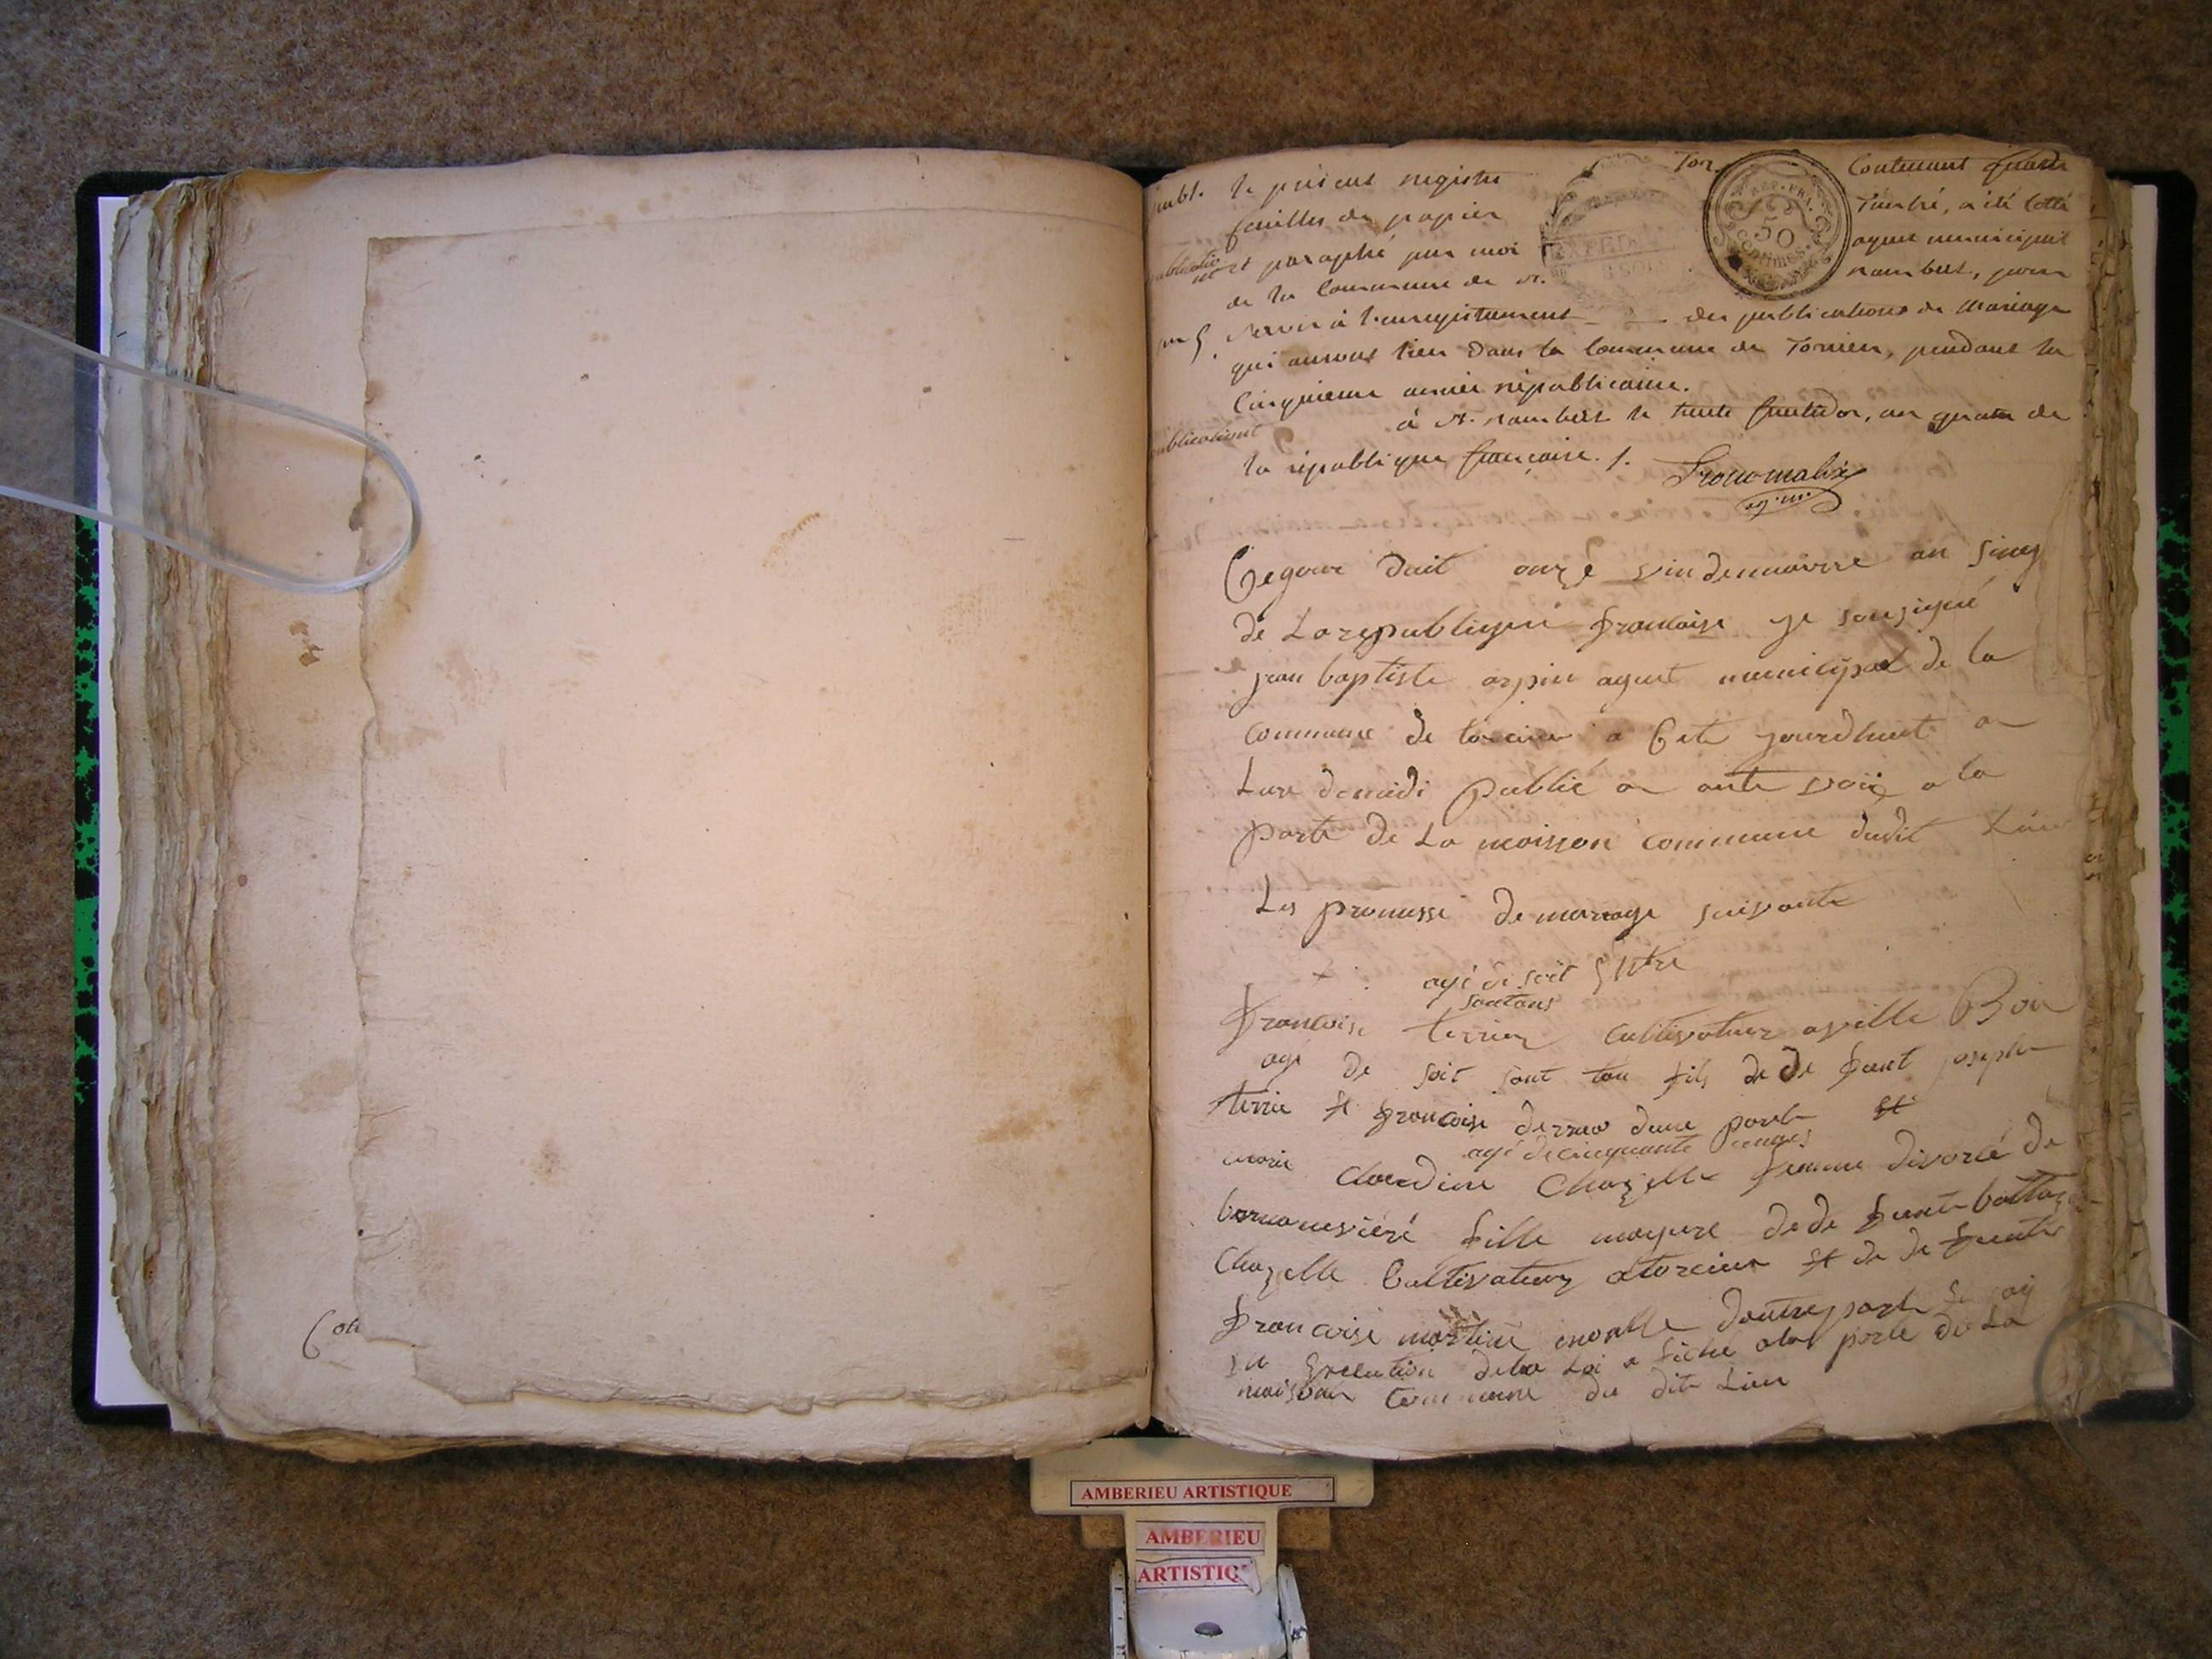 Tor.
publ. le présent registre Contenant quatre
feuilles de papier timbré, a été Cotté
publicatio
et paraphé par moi agent municipal
de la Commune de st. rambert, pour
REP. FRA.
50
centimes.
servir à l'enregistrement des publications de Mariage
qui auront lieu dans la Commune de Torcieu, pendant la
Cinquieme année républicaine.
à st. rambert le trente fructidor, an quatre de
la république française. /.
ag. m.
Cejour duit onze vindemaire an sinq
de La republique francoise je sousigné
jean baptiste arpin agent municipal de la
commune de torcieu a Cete jourdhuit a
Lure demidi publié a aute voix a la
porte de La maison commune dudit Lieu
Les promesse de mariage suivante
agé di soit
santans
francoise terrier cultivateur aville Bois
agé de soit sant tan fils de de funt joseph
terrie et francoise derruo dune part et
agé de cinquante
marie Claudine Chazelle femme divorcé de
fille mayure de de funt baltazar
Chazelle Cultivateur atorcieu et de de funte
francoise martine morelle dautre part
en Execution dela Loi a fiché ala porte de La
maison commune du dit Lieu
Cote
AMBERIEU ARTISTIQUE
AMBERIEU
ARTISTIQ